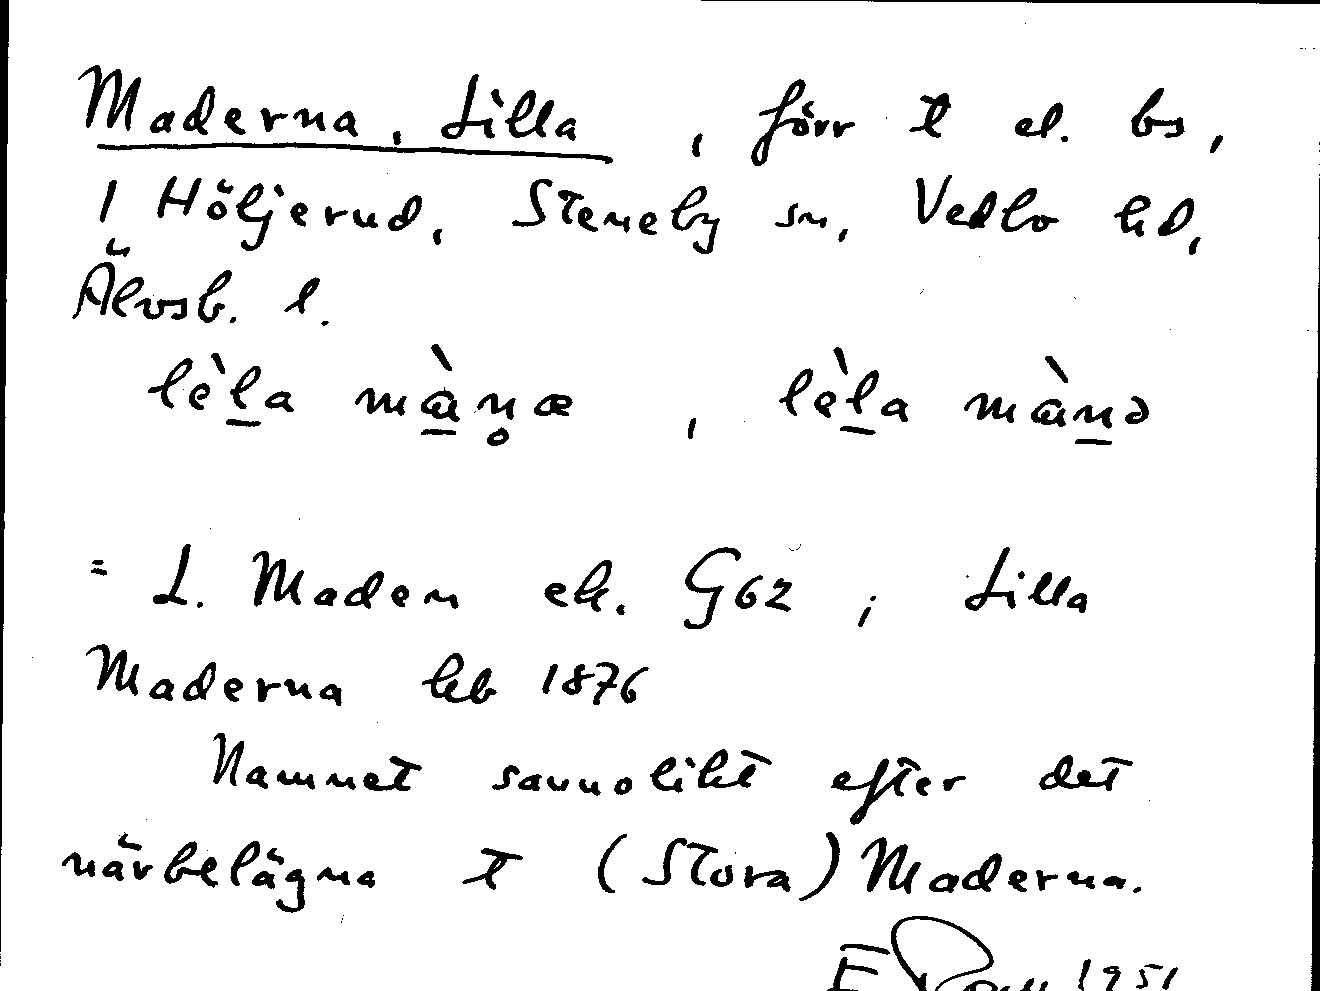 Maderna, Lilla, förr t el. bs,
1 Höljerud, Steneby sn, Vedbo hd,
Älvsb. l.
lèla màn̥æ, lèla mànə
= L. Maden ek. G62; Lilla
Maderna hkb 1876
Namnet sannolikt efter det
närbelägna t (Stora) Maderna.
E 1951